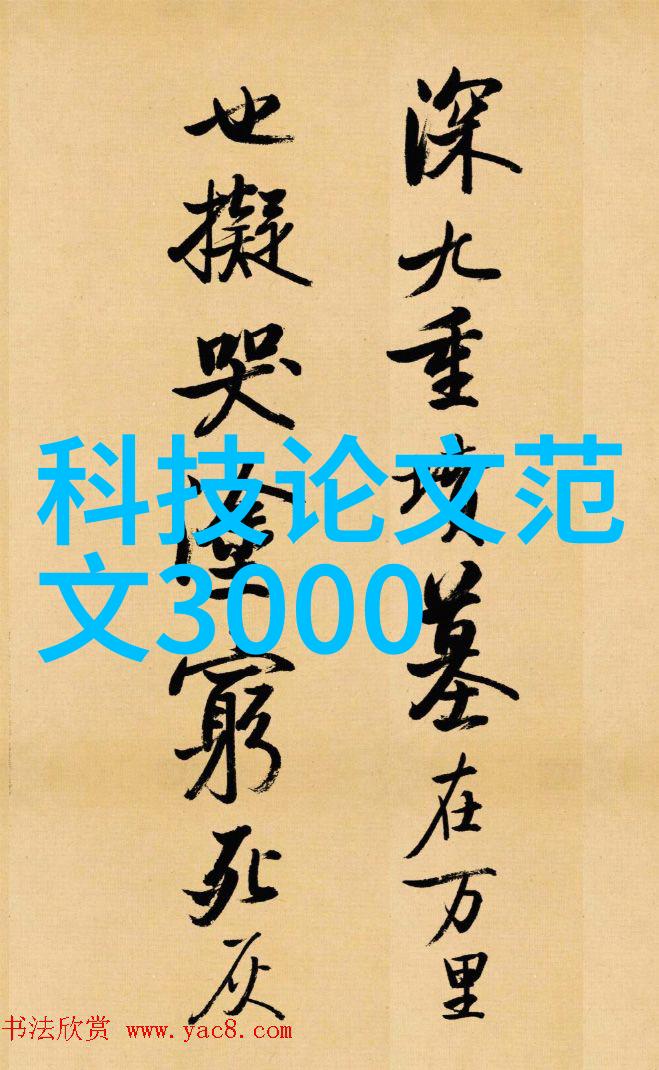 深九重墳墓在万里
也擬哭塗窮死灰
科技论文范
文3000
书法欣赏 www.yac8.com